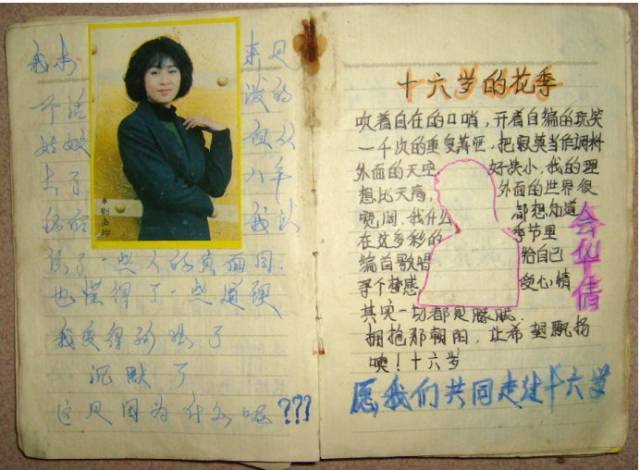 我本 来是
个活 泼的
姑娘
识了一些人的真面目.
也懂得了一些道理
我变得孤独了
沉默了
这是因为什么呢???
十六岁的花季
吹着自在的口哨，开着自编的玩笑
一千次的重复潇洒，把寂寞当作调料
外面的天空 好狭小，我的理
想比天高， 外面的世界很
喧闹，我什么 都想知道
在这多彩的 季节里
编首歌唱 给自己
寻个梦感 受心情
其实一切都是朦胧.
拥抱那朝阳，让希望飘扬
噢！十六岁
华倩
愿我们共同走过十六岁